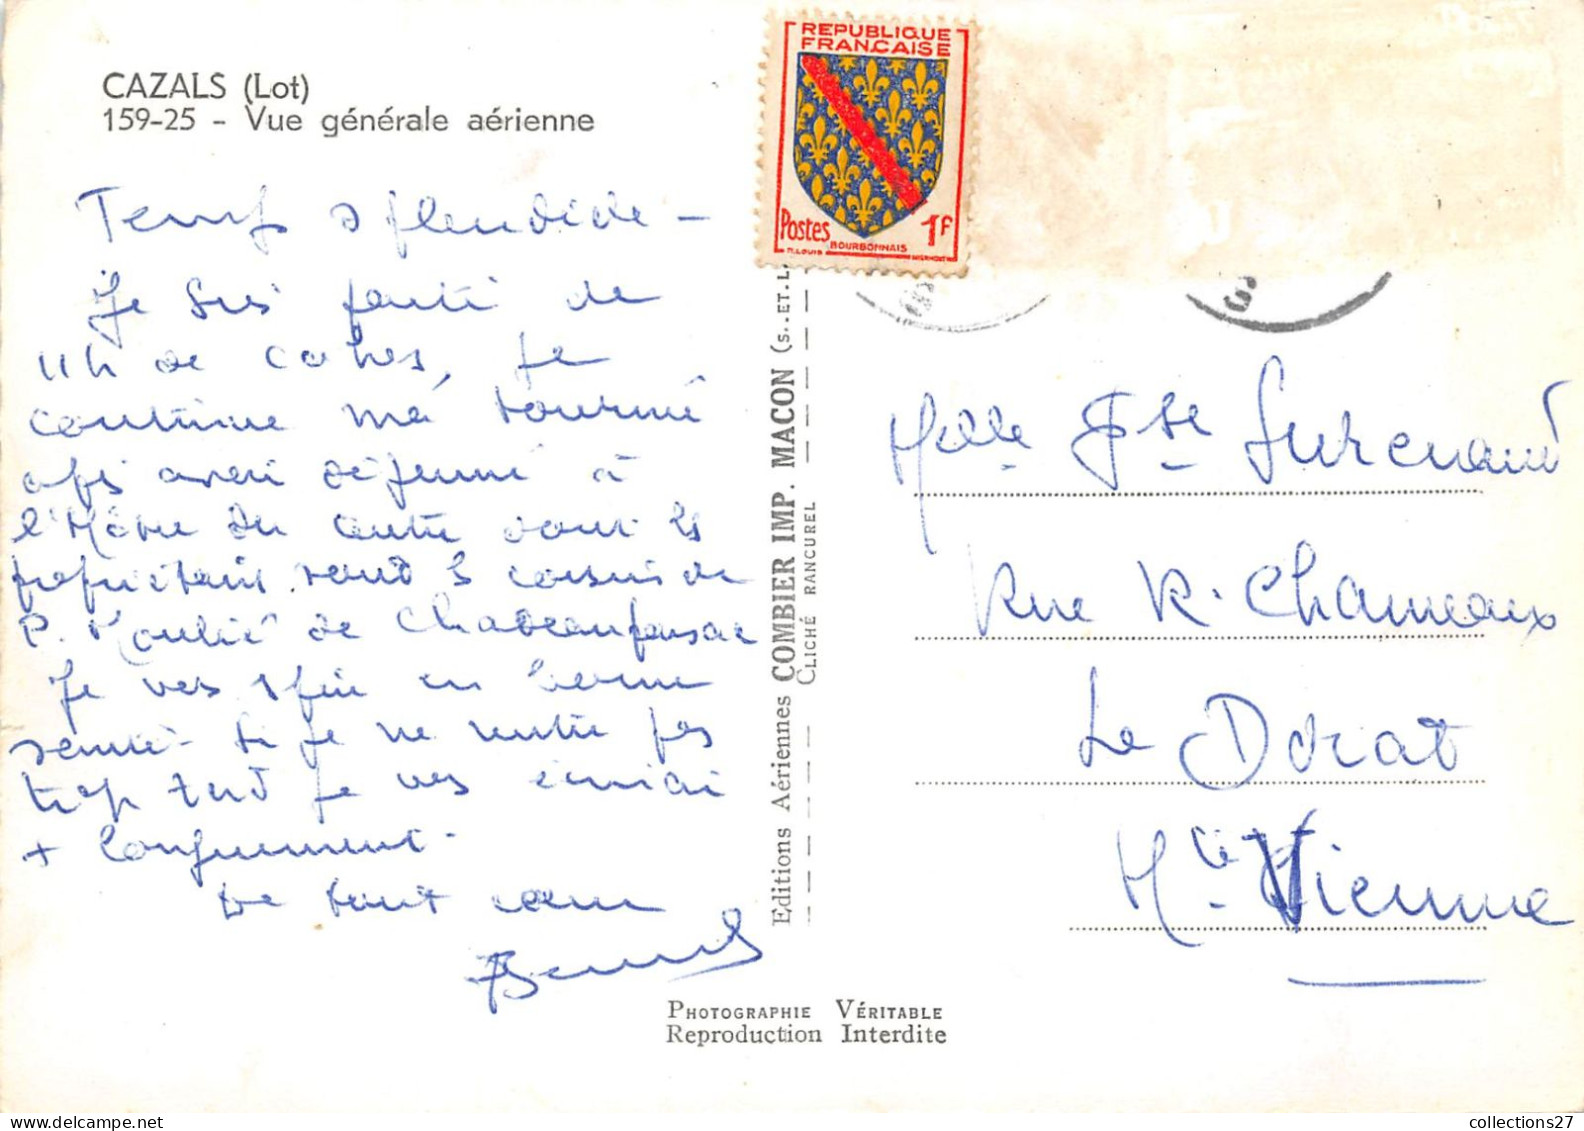 CAZALS (Lot)
159-25 - Vue générale aérienne
Temps splendide -
Je suis parti de
11h de Cahors, je
continue ma tournée
après avoir déjeuné à
l'Hôtel du centre dont les
propriétaires sont les cousins de
P. de Chateauponsac
Je vous en bonne
santé - Si je ne rentre pas
trop tard je vous écrirai
+ longuement -
De tout cœur
REPUBLIQUE
FRANÇAISE
Postes 1F
BOURBONNAIS
R. LOUIS
Editions Aériennes COMBIER IMP. MACON (S.-ET-L
CLICHÉ RANCUREL
Melle Jse Surenaud
Rue R. Chameaux
Le Dorat
Hte Vienne
PHOTOGRAPHIE VÉRITABLE
Reproduction Interdite
collections27